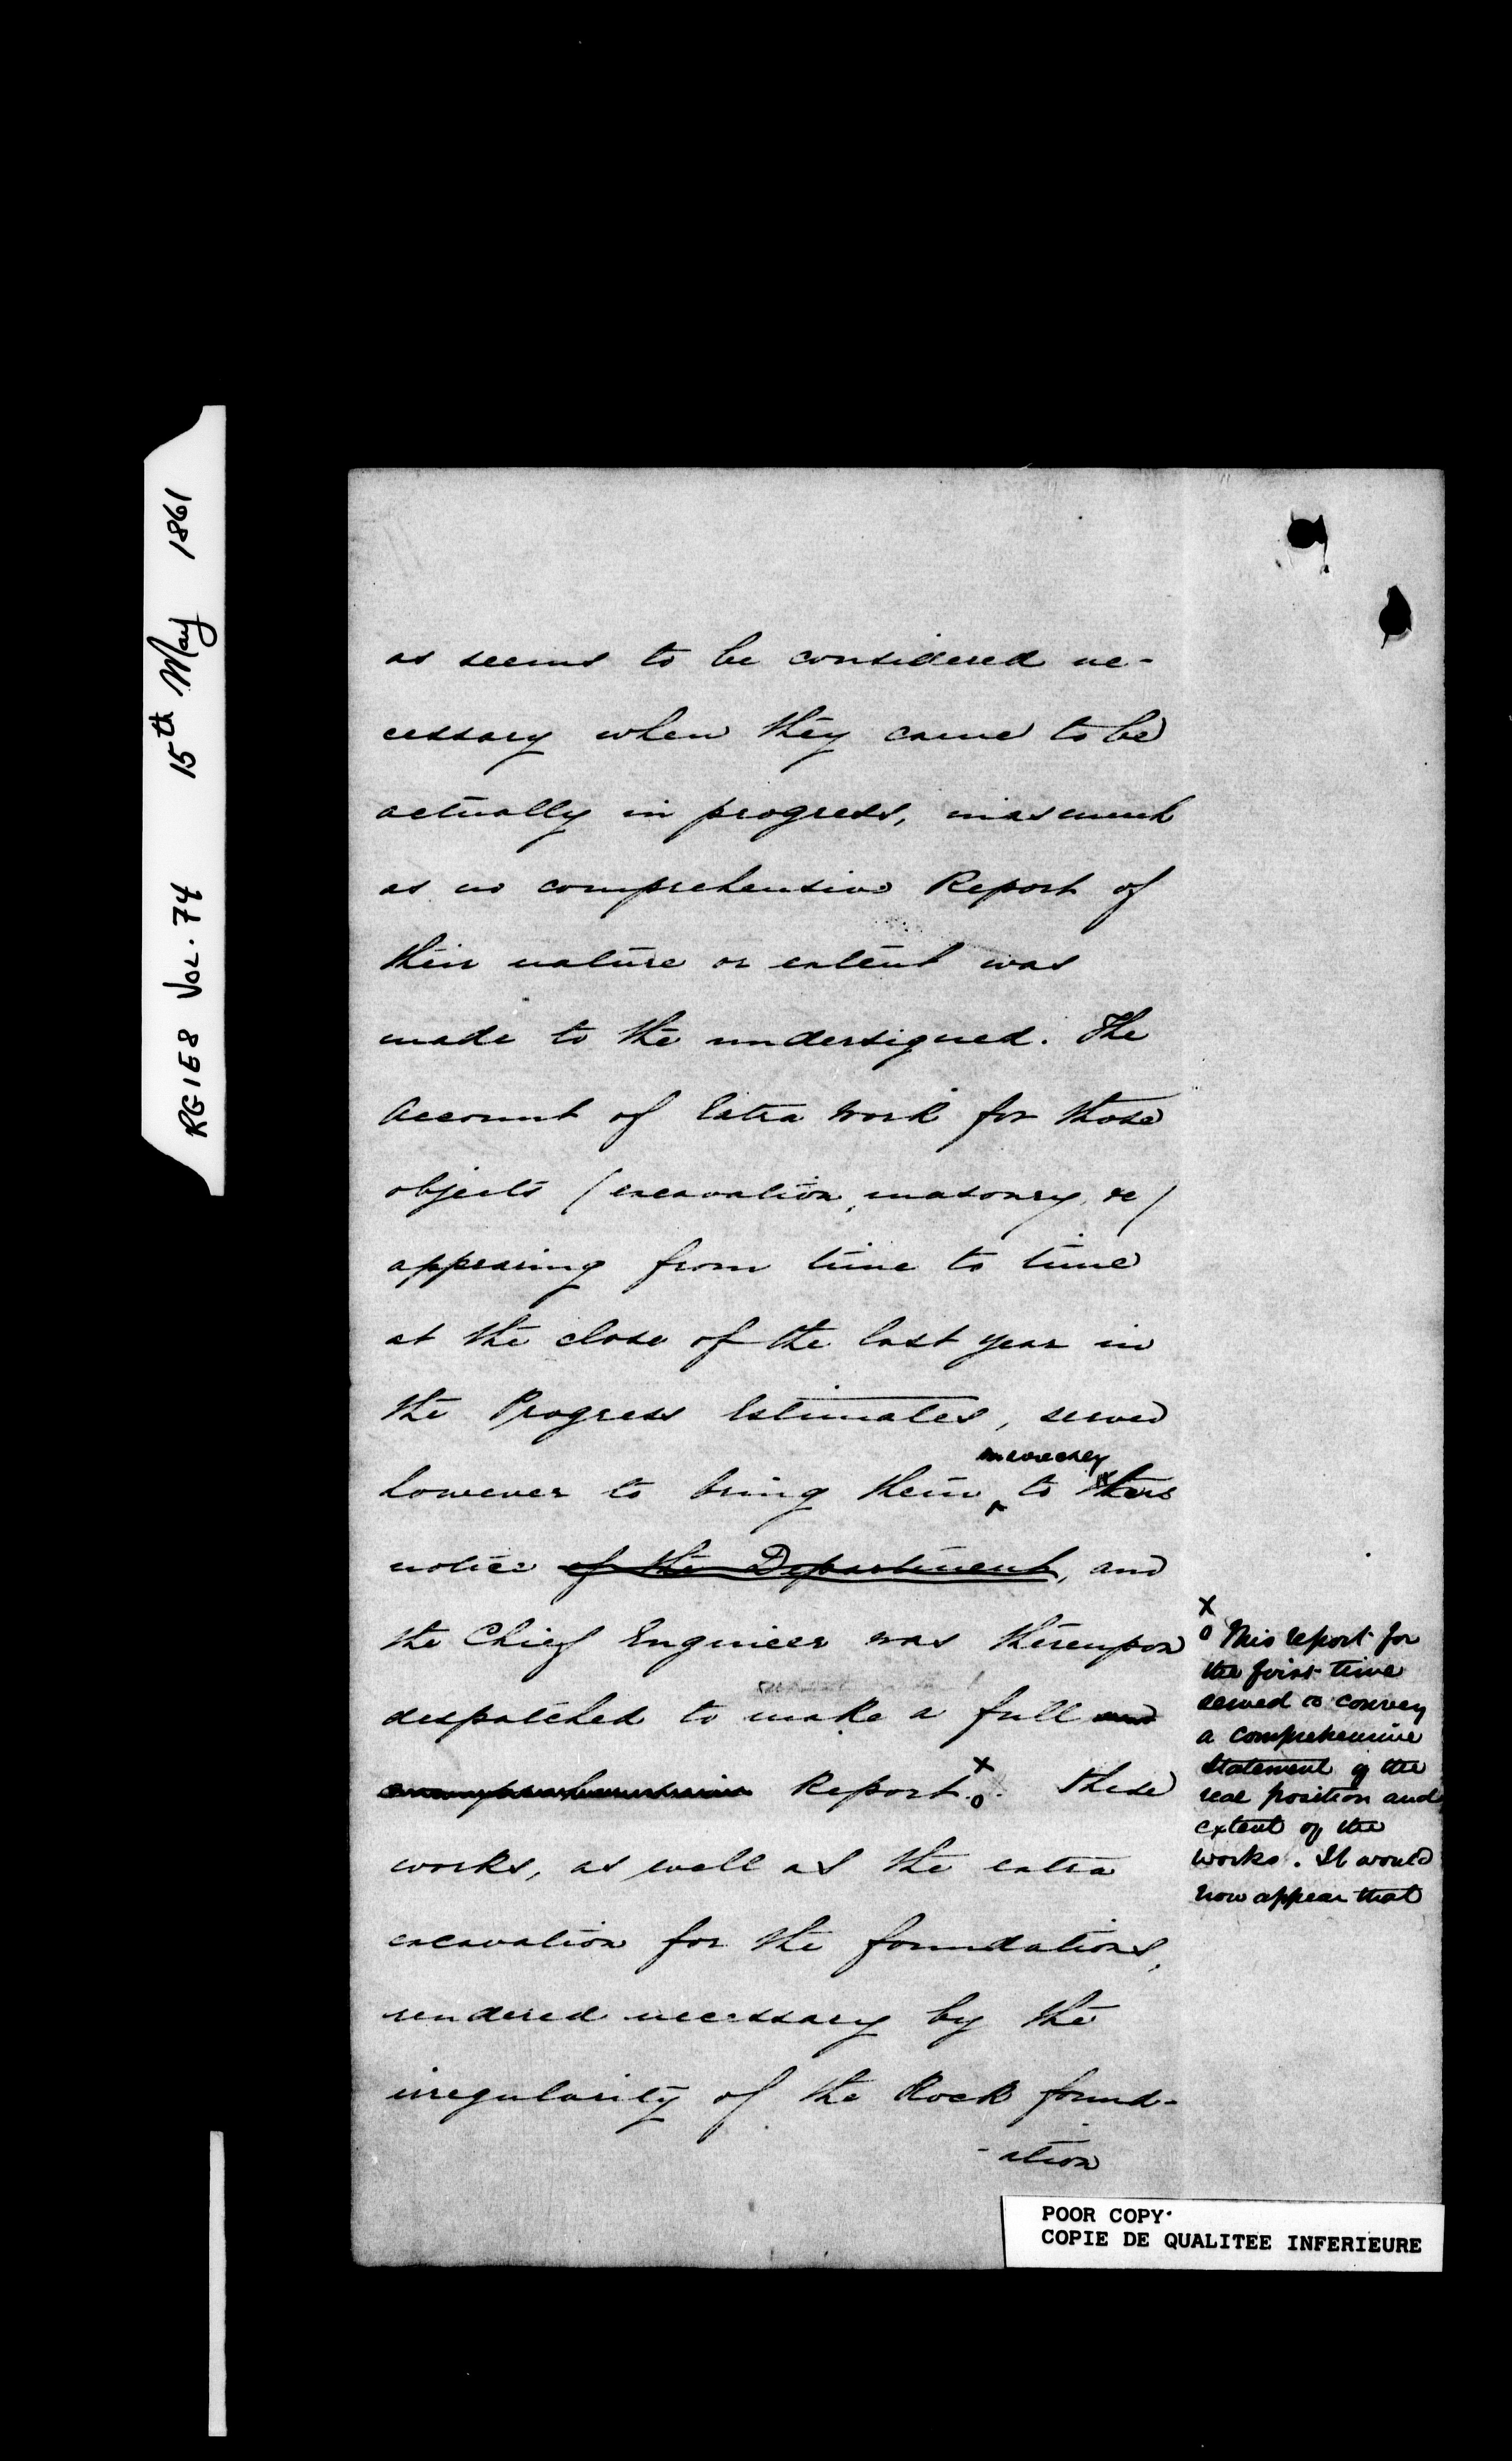 RG1E8 VOL. 74 15th May 1861
as seems to be considered ne-
cessary when they came to be
actually in progress, inasmuch
as no comprehensive Report of
their nature or extent was
made to the undersigned. The
Account of Extra Work for those
objects (excavation, masonry, &c)
appearing from time to time
at the close of the last year in
the Progress Estimates, served
however to bring them to his
notice of the Department, and
the Chief Engineer was thereupon
despatched to make a full and
comprehensive Report. x o These
works, as well as the extra
excavation for the foundations,
rendered necessary by the
irregularity of the Rock found-
-ation
x
o This report for
the first time
served to convey
a comprehensive
statement of the
real position and
extent of the
works. It would
now appear that
POOR COPY
COPIE DE QUALITEE INFERIEURE